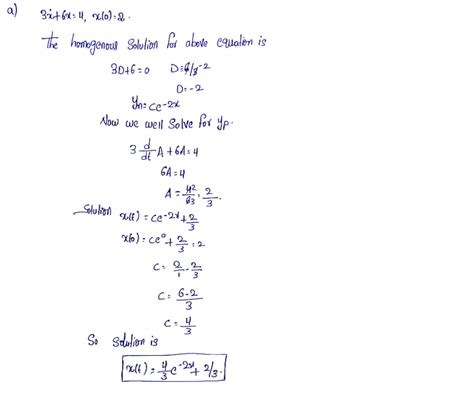 a) 3ẋ+6x=4, x(0)=2.
The homogenous Solution for above equation is
3D+6=0 D=6/3-2
D=-2
Yn=ce-2x
Now we well Solve for yp.
3 d/dt A+6A=4
6A=4
A=4/6=2/3.
Solution x(t)=ce-2x+2/3
x(0)=ce0+2/3=2
C=2/1-2/3
C=6-2/3
C=4/3
So Solution is
x(t)=4/3e-2x+2/3.